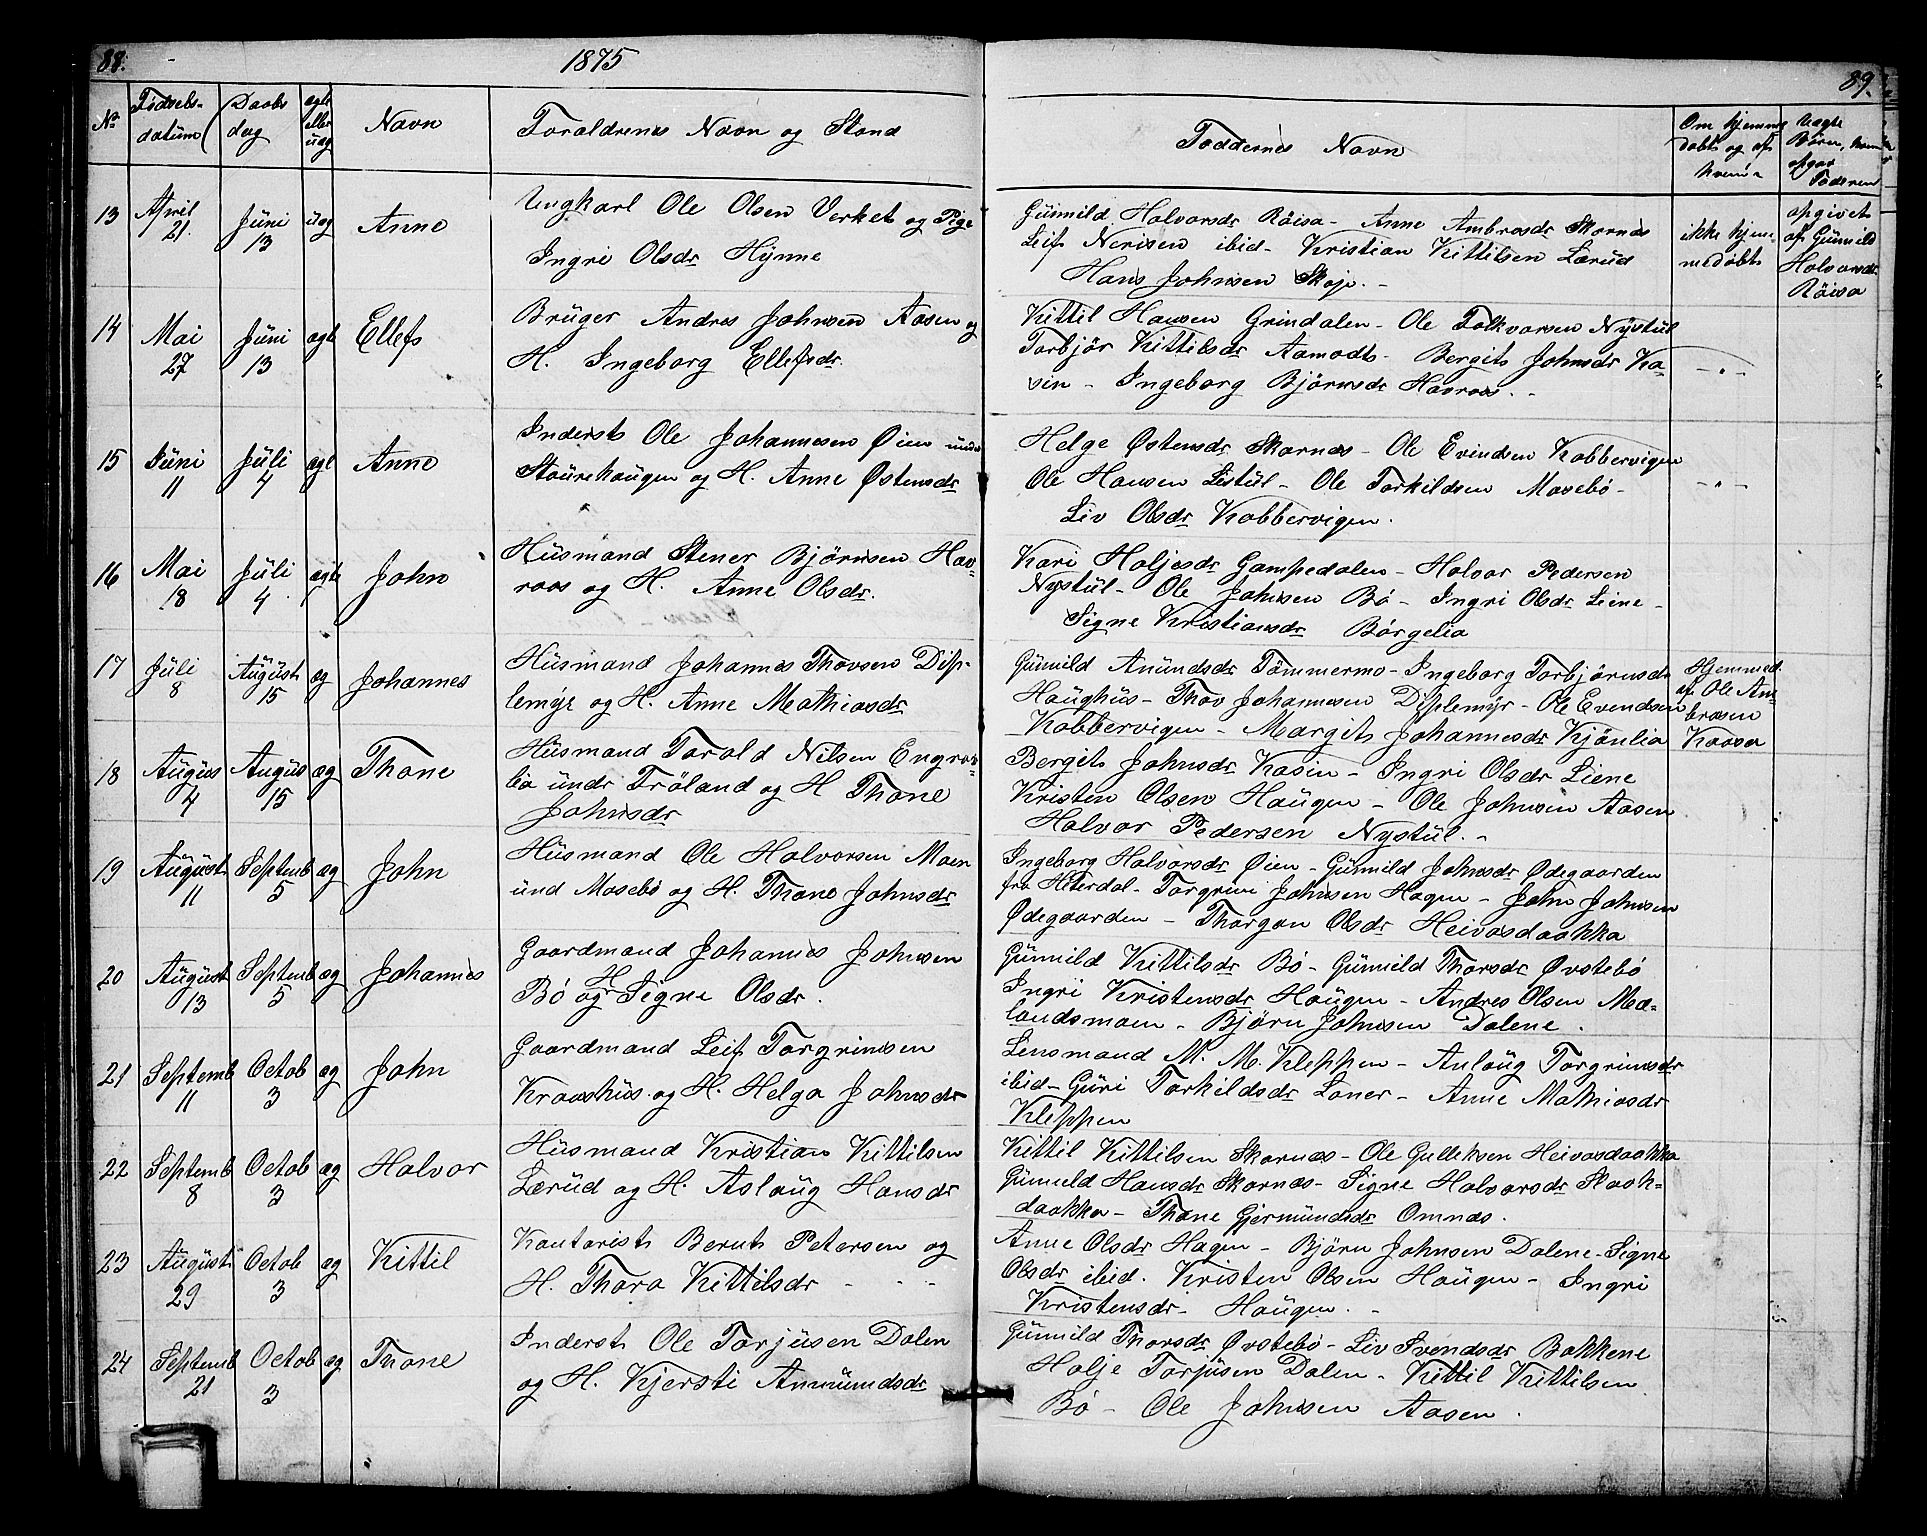 88.
1875
No
Födsels-
datum
Daabs
dag
ægte
eller
uæg
Navn
Foraldrenes Navn og Stand
13
April
21.
Juni
13
uæg
Anne
Ungkarl Ole Olsen Verket og Pige
Ingri Olsdr Hynne
14
Mai
27
Juni
13
ægt
Ellef
Bruger Andres Johnsen Aasen og
H. Ingeborg Ellefsdr.
15
Juni
11
Juli
4
ægt
Anne
Inderst Ole Johannesen Øien under
Staurehaugen og H. Anne Østensdr
16
Mai
18
Juli
4
ægte
John
Husmand Stener Björnsen Hav-
raas og H. Anne Olsdr.
17
Juli
8
August
15
æg
Johannes
Husmand Johannes Thovsen Disp-
lemyr og H. Anne Mathiasdr
18
Augus
4
Augus
15
æg
Thone
Husmand Torald Nilsen Engrav-
lia undr Fröland og H Thone
Johnsdr
19
August
11
Septemb
5
æg
John
Husmand Ole Halvorsen Moen
und Mosebö og H. Thone Johnsdr
20
August
13
Septemb
5
æg
Johannes
Gaardmand Johannes Johnsen
Bö og H Signe Olsdr.
21
Septemb
11
Octob
3
æg
John
Gaardmand Leif Torgrimsen
Kraashus og H. Helga Johnsdr
22
Septemb
8
Octob
3
æg
Halvor
Husmand Kristian Kittilsen
Lærud og H. Aslaug Hansdr
23
August
29
Octob
3
æg
Kittil
Kontorist Bernt Petersen og
H. Thora Kittilsdr - - -
24
Septemb
21
Octob
3
æg
Thone
Inderst Ole Torjusen Dalen
og H. Kjersti Anmundsdr
89.
Faddernes Navn
Om hjemme
döbt og af
hvem
Uægte
Börn, hvem
opgav
Faderen
Gunnild Halvorsdr Röisa - Anne Ambrosdr Skarnes
Leif Nerisen ibid - Kristian Kittilsen Lærud
Hans Johnsen Skoje. -
ikke hjem-
medöbt
opgivet
af Gunnild
Halvorsdr
Röisa
Kittil Hansen Grindalen - Ole Folkvarsen Nystul
Torbjör Kittilsdr Aamodt - Bergit Johnsdr Ka-
sin - Ingeborg Björnsdr Havraas. -
- " -
Helge Østensdr Skarnes - Ole Evindsen Kobbervigen
Ole Hansen Listul - Ole Torkildsen Mosebö -
Liv Olsdr Kobbervigen.
- " -
Kari Haljesdr Gampedalen - Halvor Pedersen
Nystul - Ole Johnsen Bö - Ingri Olsdr Liene -
Signe Kristiansdr Börgelia
Gunnild Anundsdr Tömmermo - Ingeborg Torbjörnsdr
Haughus - Thov Johannesen Displemyr - Ole Evendsen
Kobbervigen - Margit Johannesdr Kjönlia
Hjemmed.
af Ole Am-
brosen
Kaasa
Bergit Johnsdr Kasin - Ingri Olsdr Liene
Kristen Olsen Haugen - Ole Johnsen Aasen
Halvor Pedersen Nystul. -
Ingeborg Halvorsdr Øien - Gunnild Johnsdr Ødegaarden
fra Hiterdal - Torgrim Johnsen Hagen - John Johnsen
Ødegaarden - Thorgon Olsdr Heivasdaakka
Gunnild Kittilsdr Bö - Gunnild Thorsdr Øvstebö
Ingri Kristensdr Haugen - Andres Olsen Mæ-
landsmoen - Björn Johnsen Dalene.
Lensmand M. M. Kleppen - Anlaug Torgrimsdr
ibid - Guri Torkildsdr Loner - Anne Mathiasdr
Kleppen
Kittil Kittilsen Skarnes - Ole Gulleksen Heivasdaakka
Gunnild Hansdr Skarnes - Signe Halvorsdr Skok-
daakka - Thone Gjermundsdr Omnæs.
Anne Olsdr Hagen - Björn Johnsen Dalene - Signe
Olsdr ibid. Kristen Olsen Haugen - Ingri
Kristensdr Haugen. -
Gunnild Thorsdr Øvstebö - Liv Svendsdr Bakkene
Halje Torjusen Dalen - Kittil Kittilsen
Bö - Ole Johnsen Aasen.